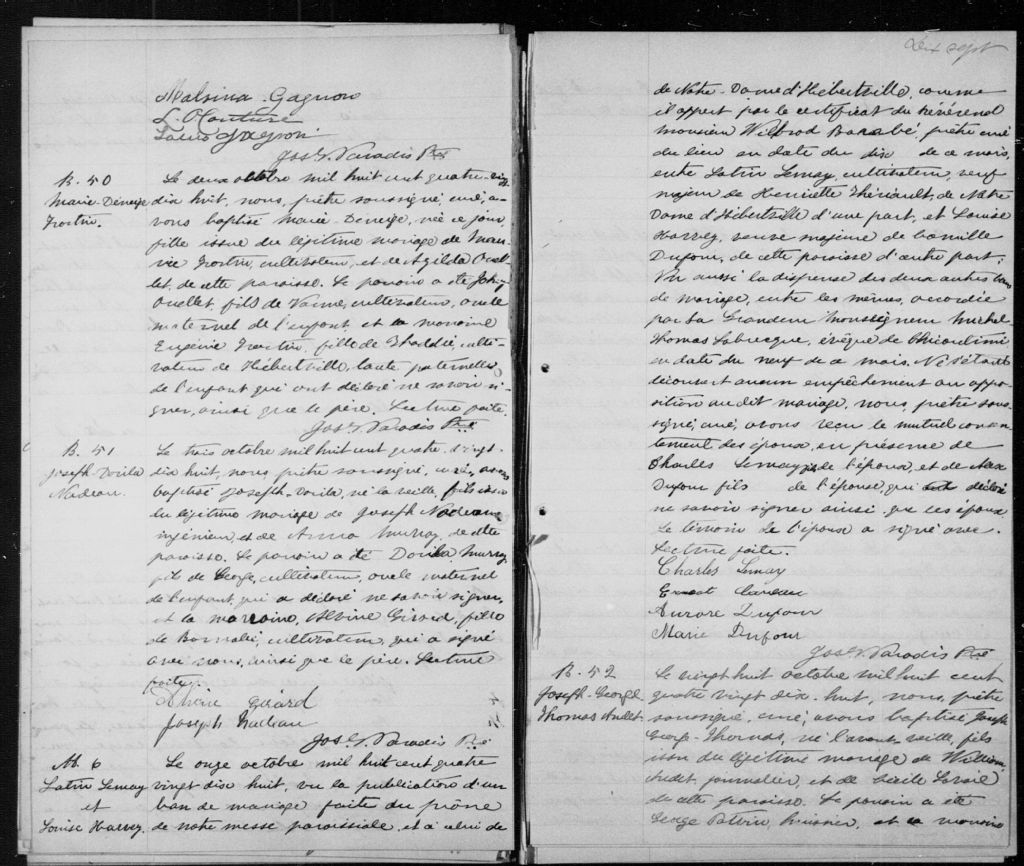 Malvina Gagnon
L. O. Couture
Louis Gagnon
Jos. S. Paradis Ptre
B. 50
Marie-Déneige
Fortin.
Le deux octobre mil huit cent quatre-vingt
dix huit, nous, prêtre soussigné, curé, a-
vons baptisé Marie-Déneige, née ce jour,
fille issue du légitime mariage de
Fortin, cultivateur, et de Azilda Ouel-
let, de cette paroisse. Le parrain a été Johny
Ouellet, fils de cultivateur, oncle
maternel de l'enfant, et la marraine
Eugénie Fortin, fille de Thaddée, culti-
vateur de Hébertville, tante paternelle
de l'enfant qui ont déclaré ne savoir si-
gner, ainsi que le père. Lecture faite.
Jos. S. Paradis Ptre
B. 51
Joseph-Dorila
Nadeau.
Le trois octobre mil huit cent quatre-vingt-
dix huit, nous, prêtre soussigné, curé, avons
baptisé Joseph-Dorila, né la veille, fils issu
du légitime mariage de Joseph Nadeau
ingénieur, et de Anna Murray, de cette
paroisse. Le parrain a été Dorila Murray
fils de George, cultivateur, oncle maternel
de l'enfant, qui a déclaré ne savoir signer,
et la marraine, Girard, fille
de Barnabé, cultivateur, qui a signé
avec nous, ainsi que le père. Lecture
faite.
Girard
Joseph Nadeau
Jos. S. Paradis Ptre
M. 6
Latin Lemay
et
Louise Harvey.
Le onze octobre mil huit cent quatre
vingt dix huit, vu la publication d'un
ban de mariage faite du prône
de notre messe paroissiale, et à celui de
Dix sept
de Notre-Dame d'Hébertville, comme
il appert par le certificat du Révérend
monsieur Wilbrod Barabé, prêtre curé
du lieu en date du dix de ce mois,
entre Latin Lemay, cultivateur, veuf
majeur de Henriette Thériault, de Notre
Dame d'Hébertville d'une part, et Louise
Harvey, veuve majeure de Camille
Dufour, de cette paroisse d'autre part;
Vu aussi la dispense des deux autres bans
de mariage, entre les mêmes, accordée
par Sa Grandeur Monseigneur Michel-
Thomas Labrecque, évêque de Chicoutimi
en date du neuf de ce mois. Ne s'étant
découvert aucun empêchement ou oppo-
sition au dit mariage, nous, prêtre sous-
signé, curé, avons reçu le mutuel consen-
tement des époux, en présence de
Charles Lemay de l'époux, et de
Dufour fils de l'épouse, qui déclaré
ne savoir signer ainsi que les époux
Le témoin de l'époux a signé avec
Lecture faite.
Charles Lemay
Ernest
Aurore Dufour
Marie Dufour
Jos. S. Paradis Ptre
B. 52
Joseph-George
Thomas
Le vingt huit octobre mil huit cent
quatre vingt dix-huit, nous, prêtre
soussigné, curé, avons baptisé Joseph
George-Thomas, né l'avant-veille, fils
issu du légitime mariage de William
journalier, et de Cécile Savoie
de cette paroisse. Le parrain a été
George Potvin, huissier, et la marraine